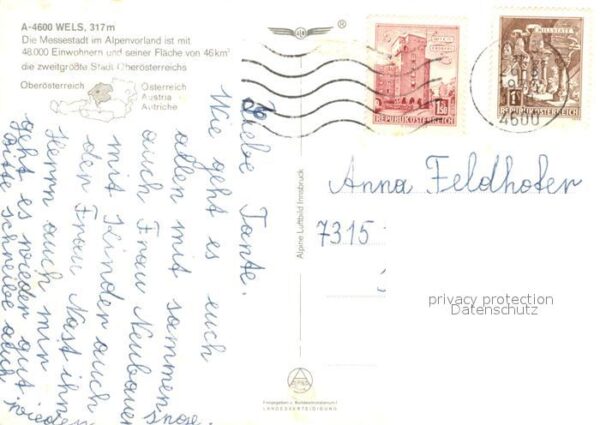 A-4600 WELS, 317m
Die Messestadt im Alpenvorland ist mit
48.000 Einwohnern und seiner Fläche von 46km²
die zweitgrößte Stadt Oberösterreichs
Oberösterreich
Österreich
Austria
Autriche
Liebe Tante.
Wie geht es euch
allen mit sammen
auch Frau Neubauer
mit Kinder auch
den Frau Nast ihn
Herrn auch mir
geht es wieder gut
bitte schreibe auch wieder
Alpine Luftbild Innsbruck
LANDESVERTEIDIGUNG
1.50
REPUBLIK ÖSTERREICH
MILLSTATT
1
REPUBLIK ÖSTERREICH
4600
Anna Feldhofer
7315
privacy protection
Datenschutz